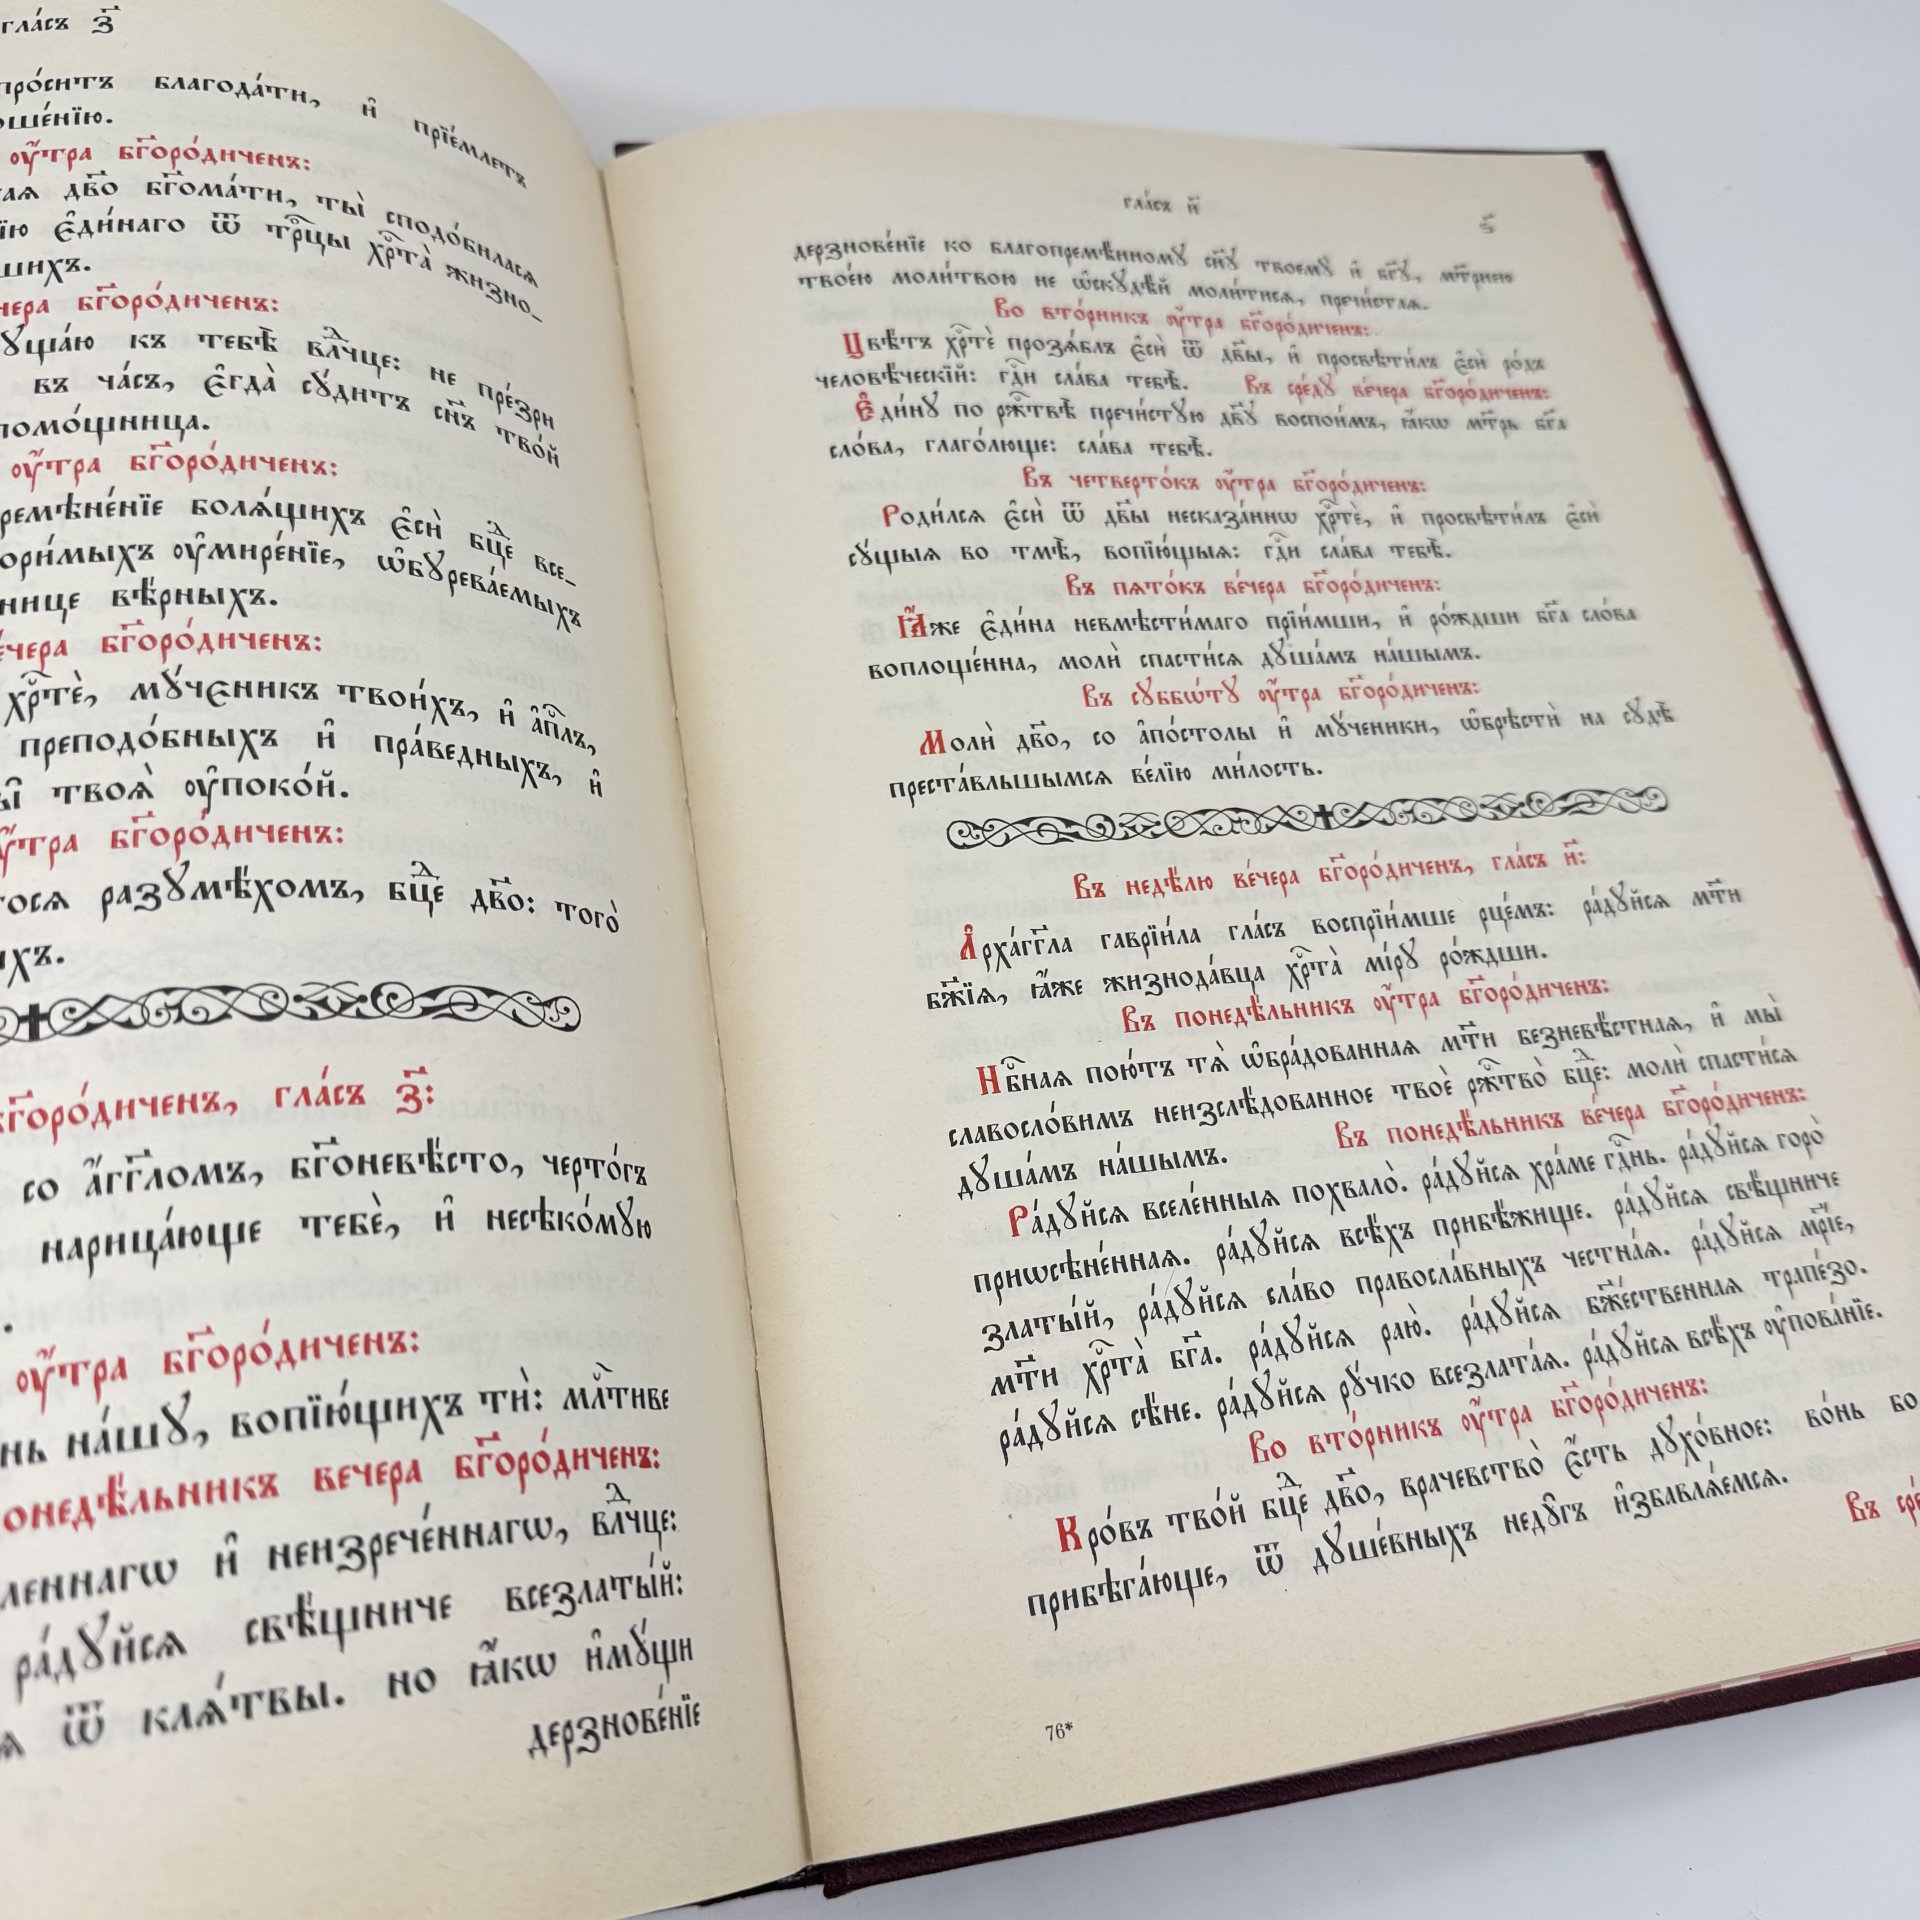 гла́съ з҃
про́ситъ благода́ти, и҆ прїе́млетъ
оу҆́тра бг҃оро́диченъ:
дв҃о бг҃ома́ти, ты̀ сподо́билася
є҆ди́наго ѿ трⷪ҇цы хрⷭ҇та̀ жизно-
шихъ.
бг҃оро́диченъ:
къ тебѣ̀ влⷣчце: не пре́зри
въ ча́съ, є҆гда̀ сꙋ́дитъ сн҃ъ тво́й
помо́щница.
оу҆́тра бг҃оро́диченъ:
боля́щихъ є҆сѝ бцⷣе все-
оу҆мире́нїе, ѡ҆бꙋрева́емыхъ
вѣ́рныхъ.
бг҃оро́диченъ:
хрⷭ҇тѐ, мꙋ́ченикъ твои́хъ, и҆ а҆пⷭ҇лъ,
преподо́бныхъ и҆ пра́ведныхъ, и҆
твоѧ̀ оу҆поко́й.
бг҃оро́диченъ:
разꙋмѣ́хомъ, бцⷣе дв҃о: того̀
бг҃оро́диченъ, гла́съ з҃:
со а҆́гг҃ломъ, бг҃оневѣ́сто, черто́гъ
нарица́юще тебѐ, и҆ несѣко́мꙋю
оу҆́тра бг҃оро́диченъ:
на́шꙋ, вопїю́щихъ тѝ: млⷭ҇тиве
вечера бг҃оро́диченъ:
и҆ неизрече́ннагѡ, влⷣчце:
ра́дꙋйсѧ свѣ́щниче всезлаты́й:
ѿ клѧ́твы. но ꙗ҆́кѡ и҆мꙋ́щи
дерзнове́нїе
гла́съ и҃
дерзнове́нїе ко благопремѣ́нномꙋ сн҃ꙋ твоемꙋ̀ и҆ бг҃ꙋ, мт҃рнею
твое́ю моли́твою не ѡ҆скꙋдѣ́й моли́тисѧ, пречи́стаѧ.
Во вто́рникъ оу҆́тра бг҃оро́диченъ:
Цвѣ́тъ хрⷭ҇тѐ прозѧ́блъ є҆сѝ ѿ дв҃ы, и҆ просвѣти́лъ є҆сѝ ро́дъ
человѣ́ческїй: гдⷭ҇и сла́ва тебѣ̀. Въ сре́дꙋ ве́чера бг҃оро́диченъ:
Є҆ди́нꙋ по ржⷭ҇твѣ̀ пречи́стꙋю дв҃ꙋ воспои́мъ, ꙗ҆́кѡ мт҃рь бг҃а
сло́ва, глаго́люще: сла́ва тебѣ̀.
Въ четверто́къ оу҆́тра бг҃оро́диченъ:
Роди́лсѧ є҆сѝ ѿ дв҃ы несказа́ннѡ хрⷭ҇тѐ, и҆ просвѣти́лъ є҆сѝ
сꙋ́щыѧ во тмѣ̀, вопїю́щыѧ: гдⷭ҇и сла́ва тебѣ̀.
Въ пѧто́къ ве́чера бг҃оро́диченъ:
Ꙗ҆́же є҆ди́на невмѣсти́маго прїи́мши, и҆ ро́ждши бг҃а сло́ва
воплоще́нна, молѝ спасти́сѧ дꙋша́мъ на́шымъ.
Въ сꙋббѡ́тꙋ оу҆́тра бг҃оро́диченъ:
Молѝ дв҃о, со а҆по́столы и҆ мꙋ́ченики, ѡ҆брѣстѝ на сꙋдѣ̀
преста́вльшымсѧ ве́лїю ми́лость.
Въ недѣ́лю ве́чера бг҃оро́диченъ, гла́съ и҃:
А҆рха́гг҃ла гаврїи́ла гла́съ воспрїи́мше рце́мъ: ра́дꙋйсѧ мт҃и
бж҃їѧ, ꙗ҆́же жизнода́вца хрⷭ҇та̀ мі́рꙋ ро́ждши.
Въ понедѣ́льникъ оу҆́тра бг҃оро́диченъ:
Нбⷭ҇наѧ пою́тъ тѧ̀ ѡ҆бра́дованнаѧ мт҃и безневѣ́стнаѧ, и҆ мы̀
славосло́вимъ неизслѣ́дованное твоѐ ржⷭ҇тво̀ бцⷣе: молѝ спасти́сѧ
дꙋша́мъ на́шымъ. Въ понедѣ́льникъ ве́чера бг҃оро́диченъ:
Ра́дꙋйсѧ вселе́нныѧ похвало̀. ра́дꙋйсѧ хра́ме гдⷭ҇нь. ра́дꙋйсѧ горо̀
приѡсѣне́ннаѧ. ра́дꙋйсѧ всѣ́хъ прибѣ́жище. ра́дꙋйсѧ свѣ́щниче
златы́й, ра́дꙋйсѧ сла́во правосла́вныхъ честна́ѧ. ра́дꙋйсѧ мр҃і́е,
мт҃и хрⷭ҇та̀ бг҃а. ра́дꙋйсѧ раю̀. ра́дꙋйсѧ бж҃е́ственнаѧ трапе́зо.
ра́дꙋйсѧ сѣ́не. ра́дꙋйсѧ рꙋ́чко всезлата́ѧ. ра́дꙋйсѧ всѣ́хъ оу҆пова́нїе.
Во вто́рникъ оу҆́тра бг҃оро́диченъ:
Кро́въ тво́й бцⷣе дв҃о, врачевство̀ є҆́сть дꙋхо́вное: во́нь бо
прибѣга́юще, ѿ дꙋше́вныхъ недꙋ̑гъ и҆збавлѧ́емсѧ.
Въ
76*